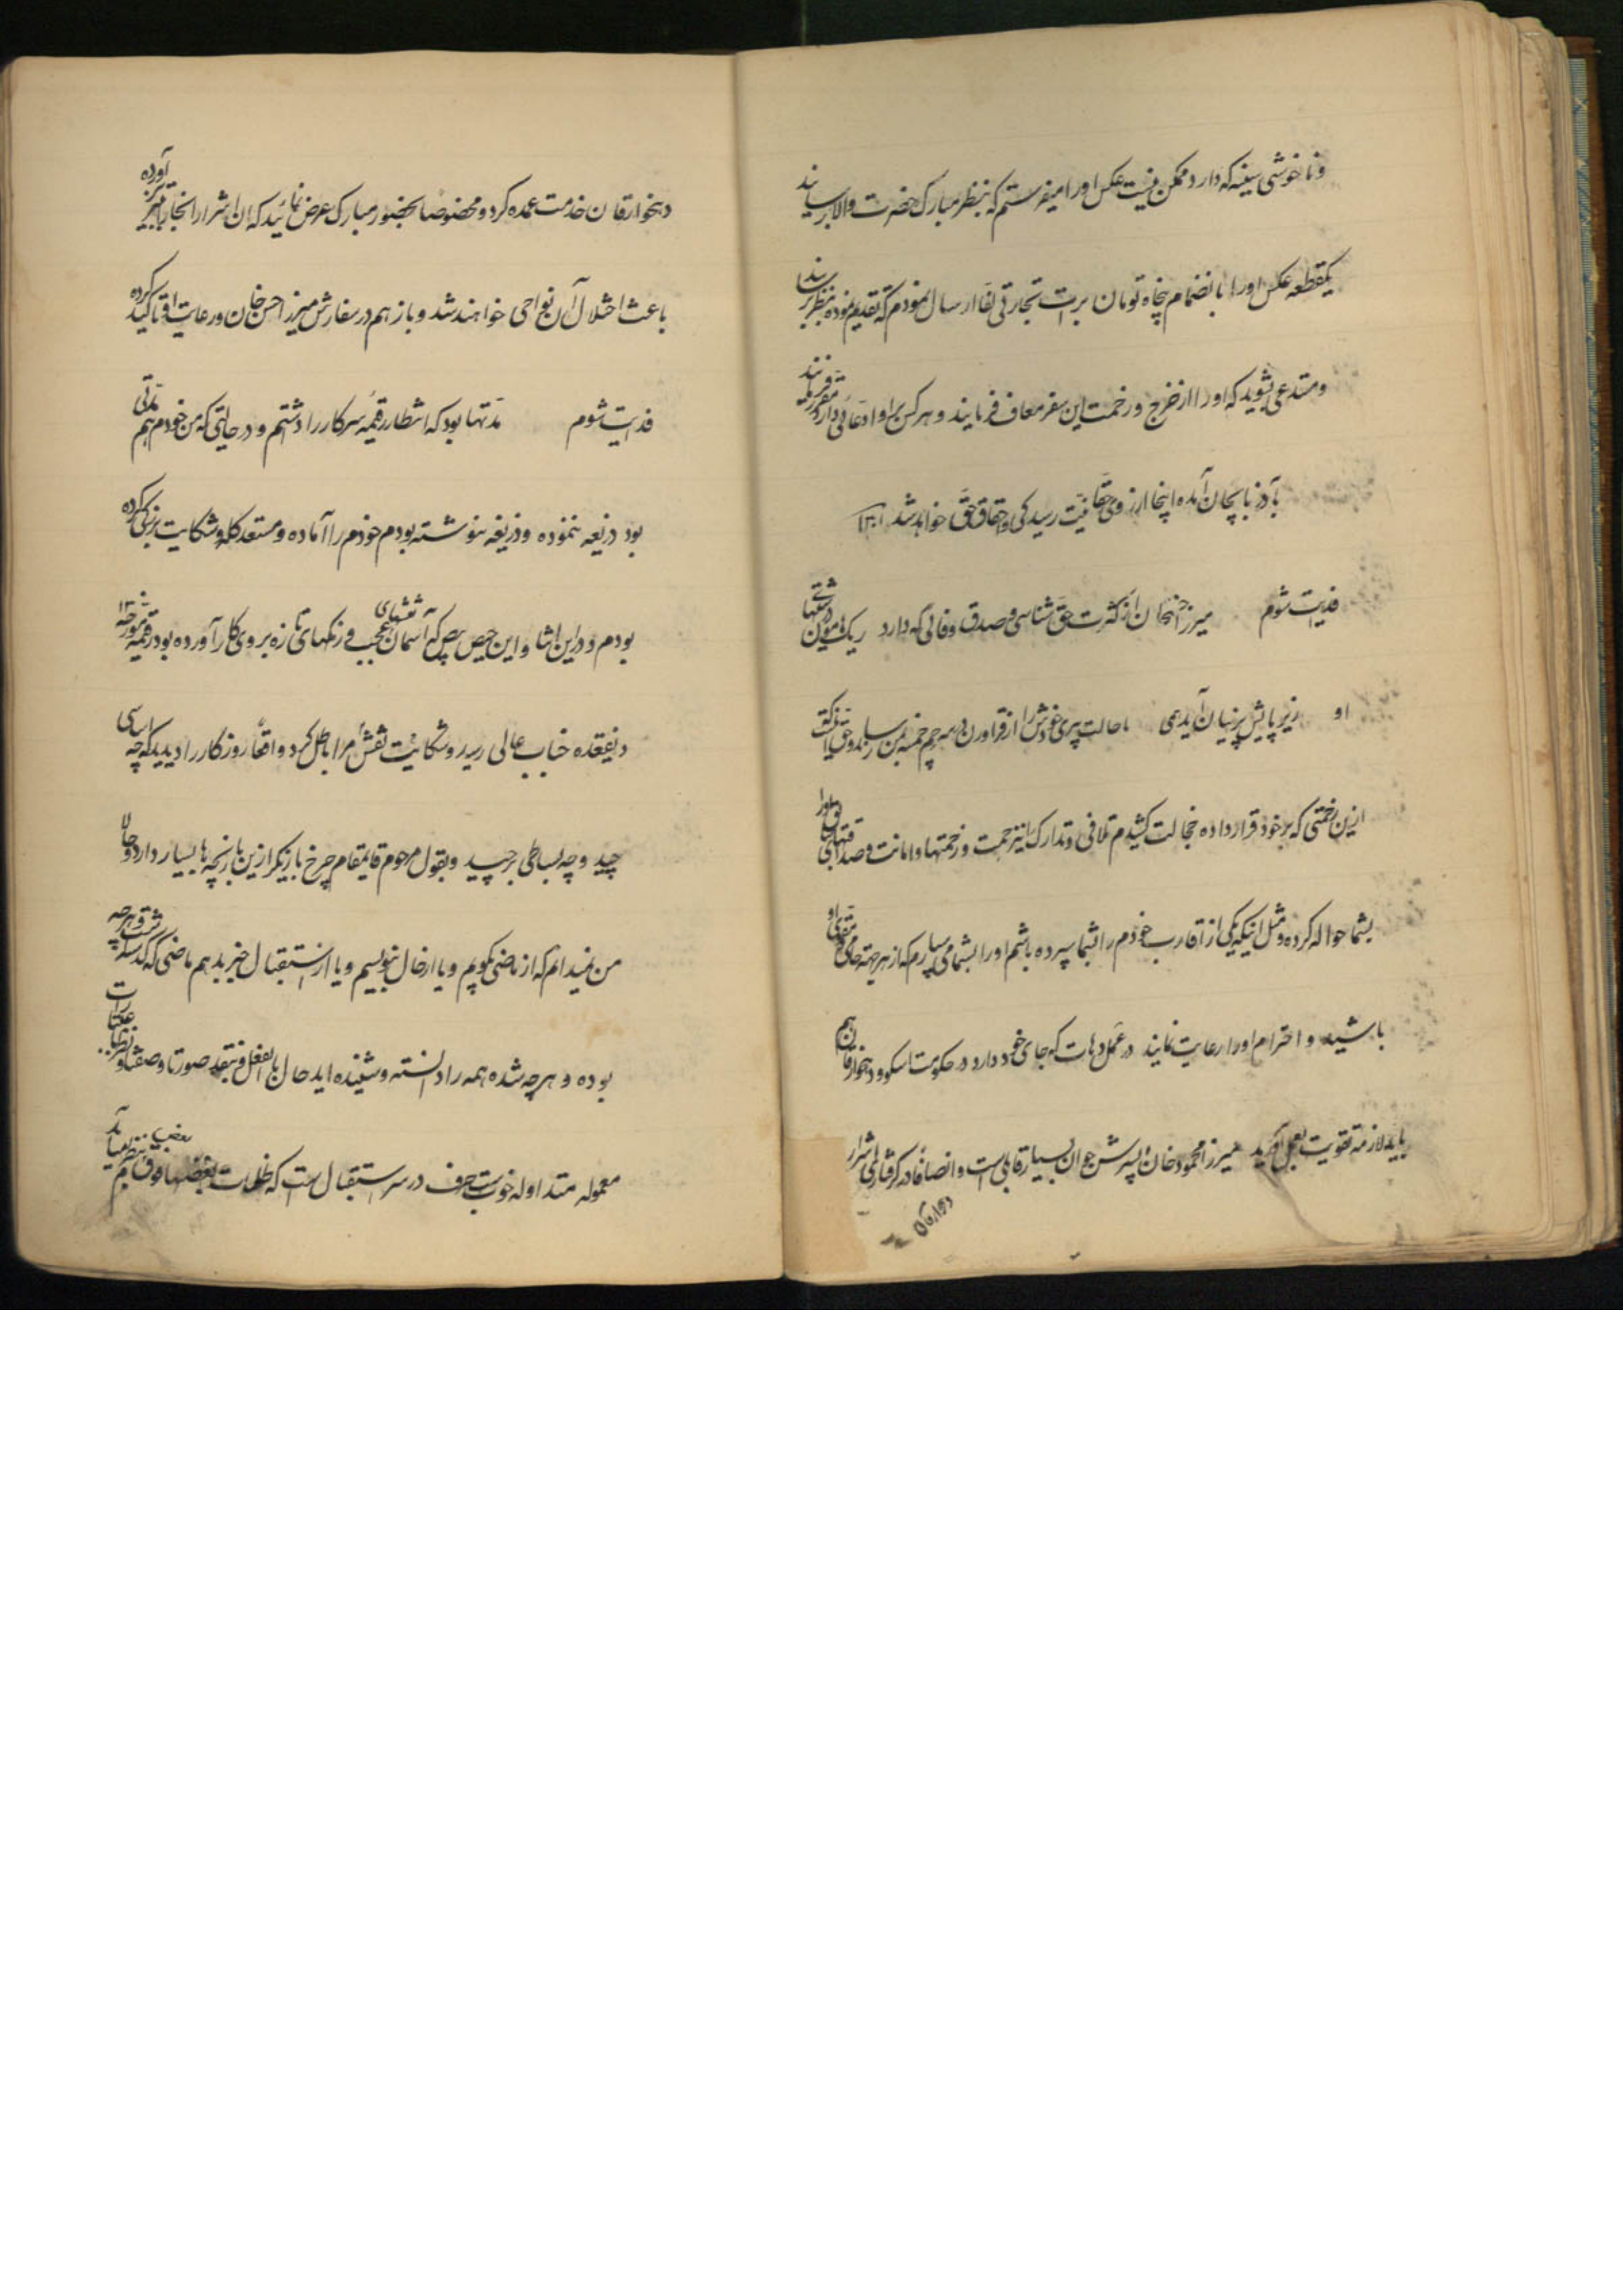 و ناخوشی سینه که دارد ممکن نیست عکس او را میفرستم که بنظر مبارک حضرت والا برسانید
یکقطعه عکس او را بانضمام پنجاه تومان برات تجارتی لفاً ارسال نمودم که تقدیم نموده بنظر برسانند
و مستدعی بشوید که او را از خرج و زحمت این سفر معاف فرمایند و هر کس بر او ادعائی دارد مقرر فرمایند
بآذربایجان آمده اینجا از روی حقانیت رسیدگی و احقاق حق خواهد شد ۱۳۰۱
فدایت شوم میرزا خان از کثرت حق شناسی و صدق و وفائی که دارد ریک هامون و درشتیهای
او زیر پایش پرنیان آید همی با حالت پیری خودش را از قراورن در مهرجه خمسه بمن رسانید و حق
ازین زحمتی که بر خود قرار داده خجالت کشیدم تلافی و تدارک این زحمت و زحمتها و امانت و صداقتهای او را
بشما حواله کرده و مثل اینکه یکی از اقارب خودم را بشما سپرده باشم او را بشما می سپارم که از هر جهة حامی و مقوی او
باشید و احترام او را رعایت نمایند در عمل دهات که جای خود دارد در حکومت اسکو و دهخوارقان هم
باید لازمه تقویت بعمل آورید میرزا محمود خان پسرش جوان بسیار قابلی است و انصافاً در گرفتاری اشرار
دهخوارقان
دهخوارقان خدمت عمده کرد و مخصوصاً بحضور مبارک عرض نمائید که ان اشرار را انجا به تبریز آورده
باعث اختلال آن نواحی خواهند شد و باز هم در سفارش میرزا حسن خان و رعایت او تاکید کرده
فدایت شوم مدتها بود که انتظار رقیمه سرکار را داشتم و در حالتی که من خودم هم مدتی
بود ذریعه ننموده و ذریعه ننوشته بودم خودم را آماده و مستعد گله و شکایت بزرگی کرده
بودم و در این اثنا و این حیص بیص که آسمان نقشهای عجیب و رنگهای تازه بروی کار آورده بود رقیمه مورخه ۱۳
ذیقعده جناب عالی رسید و شکایت نقش مرا باطل کرد واقعاً روزگار را دیدید که چه اساسی
چید و چه بساطی برچید و بقول مرحوم قایمقام چرخ بازیگر ازین بازیچه ها بسیار دارد و حالا
من نمیدانم که از ماضی بگویم و یا از حال بنویسم و یا از استقبال خبر بدهم ماضی که گذشت و هر چه
بوده و هر چه شده همه را دانسته و شنیده اید حال بالفعل و نقد صورتاً و صفتاً و نظماً عبارات
معموله متداوله خوبست حرف در سر استقبال است که ظلمات بعضها فوق بعض بنظرم میاید